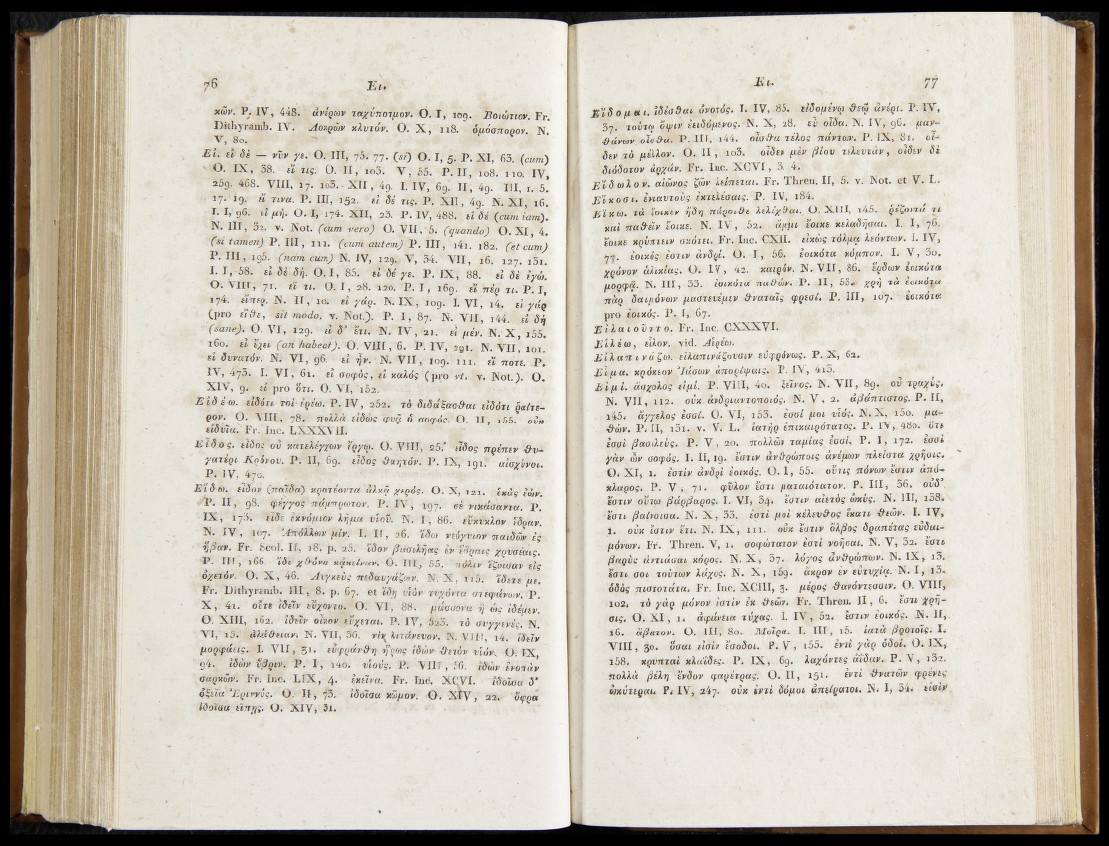 76
Ει.
κῶν. P. IV, 448. ἀνέρων ταχύποτμον. O. I, 109. Βοιώτιον. Fr.
Dithyramb. IV. Λοκρῶν κλυτόν. O. X, 118. ὁμόσπορον. N.
V, 80.
Εἰ. εἰ δὲ — νῦν γε. O. III, 75. 77. (si) O. I, 5. P. XI, 63. (cum)
O. IX, 38. εἴ τις. O. II, 103. V, 55. P. II, 108. 110. IV,
259. 468. VIII, 17. 103. XII, 49. I. IV, 69. II, 49. III, 1. 5.
17. 19. εἴ τινα. P. III, 152. εἰ δέ τις. P. XII, 49. N. XI, 16.
I. I, 96. εἰ μή. O. I, 174. XII, 23. P. IV, 488. εἰ δὲ (cum iam).
N. III, 32. v. Not. (cum vero) O. VII, 5. (quando) O. XI, 4.
(si tamen) P. III, 111. (cum autem) P. III, 141. 182. (et cum)
P. III, 195. (nam cum) N. IV, 129. V, 34. VII, 16. 127. 131.
I. I, 58. εἰ δὲ δή. O. I, 85. εἰ δέ γε. P. IX, 88. εἰ δὲ ἐγώ.
O. VIII, 71. εἴ τι. O. I, 28. 120. P. I, 169. εἴ πέρ τι. P. I,
174. εἴπερ. N. II, 10. εἰ γάρ. N. IX, 109. I. VI, 14. εἰ γὰρ
(pro εἴθε, sit modo. v. Not.). P. I, 87. N. VII, 144. εἰ δὴ
(sane). O. VI, 129. εἰ δ' ἔτι. N. IV, 21. εἰ μέν. N. X, 155.
160. εἰ ἔχει (an habeat). O. VIII, 6. P. IV, 291. N. VII, 101.
εἰ δυνατόν. N. VI, 96. εἰ ἦν. N. VII, 109. 111. εἴ ποτε. P.
IV, 473. I. VI, 61. εἰ σοφός, εἰ καλός (pro ut. v. Not.). O.
XIV, 9. εἰ pro ὅτι. O. VI, 152.
Εἰδέω. εἰδότι τοι ἐρέω. P. IV, 252. τὸ διδάξασθαι εἰδότι ῥᾴτε-
ρον. O. VIII, 78. πολλὰ εἰδὼς φυᾷ ὁ σοφός. O. II, 155. οὐκ
εἰδυῖα. Fr. Inc. LXXXVII.
Εἶδος. εἶδος οὐ κατελέγχων ἔργῳ. O. VIII, 25. εἶδος πρέπεν θυ-
γατέρι Κρόνου. P. II, 69. εἶδος θαητόν. P. IX, 191. αἰσχύνοι.
P. IV, 470.
Εἴδω. εἶδον (παῖδα) κρατέοντα ἀλκᾷ χερός. O. X, 121. ἑκὰς ἐών.
P. II, 98. φέγγος πάμπρωτον. P. IV, 197. σὲ νικάσαντα. P.
IX, 173. εἶδε ἐκνόμιον λῆμα υἱοῦ. N. I, 86. εὔκυκλον ἕδραν.
N. IV, 107. Ἀπόλλων μίν. I. II, 26. ἴδω νεόγυιον παιδῶν ἐς
ἥβαν. Fr. Scol. II, 18. p. 25. ἴδον βασιλῆας ἐν ἕδραις χρυσέαις.
P. III, 166. ἴδε χθόνα κἀκείναν. O. III, 55. πόλιν ἕζοισαν εἰς
ὀχετόν. O. X, 46. Λυγκεὺς πεδαυγάζων. N. X, 115. ἴδετε με.
Fr. Dithyramb. III, 8. p. 67. et ἴδῃ υἱὸν τυχόντα στεφάνων. P.
X, 41. οὔτε ἰδεῖν εὔχοντο. O. VI, 88. μάσσονα ἢ ὡς ἰδέμεν.
O. XIII, 162. ἰδεῖν οἶκον εὔχεται. P. IV, 523. τὸ συγγενές. N.
VI, 15. ἀλάθειαν. N. VII, 36. νῖκ. λιτάνευον. N. VIII, 14. ἰδεῖν
μορφάεις. I. VII, 31. εὐφράνθη ἥρως ἰδὼν θετὸν υἱόν. O. IX,
94. ἰδὼν ὕβριν. P. I, 140. υἱούς. P. VIII, 56. ἰδὼν ἐνοπὰν
σαρκῶν. Fr. Inc. LIX, 4. ἐκεῖνα. Fr. Inc. XCVI. ἰδοῖσα δ'
ὀξεῖα Ἐριννύς. O. II, 73. ἰδοῖσα κῶμον. O. XIV, 22. ὄφρα
ἰδοῖσα εἴπῃς. O. XIV, 31.
Ει.
77
Εἴδομαι. ἰδέσθαι ὀνοτός. I. IV, 85. εἰδομένῳ θεῷ ἀνέρι. P. IV,
37. τούτῳ ὄψιν ἐειδόμενος. N. X, 28. εὖ οἶδα. N. IV, 96. μαν-
θάνων οἶσθα. P. III, 144. οἶσθα τέλος πάντων. P. IX, 81. οἶ-
δεν τὸ μέλλον. O. II, 103. οἶδεν μὲν βίου τελευτάν, οἶδεν δὲ
διόσδοτον ἀρχάν. Fr. Inc. XCVI, 3. 4.
Εἴδωλον. αἰῶνος ζῶν λείπεται. Fr. Thren. II, 5. v. Not. et V. L.
Εἴκοσι. ἐνιαυτοὺς ἐκτελέσαις. P. IV, 184.
Εἴκω. τὰ ἔοικεν ἤδη πάροιθε λελέχθαι. O. XIII, 145. ῥέζοντά τι
καὶ παθεῖν ἔοικε. N. IV, 52. ἄμμι ἔοικε κελαδῆσαι. I. I, 76.
ἔοικε κρύπτειν σκότει. Fr. Inc. CXII. εἰκὼς τόλμᾳ λεόντων. I. IV,
77. ἐοικός ἐστιν ἀνδρί. O. I, 56. ἐοικότα κόμπον. I. V, 30.
χρόνον ἁλικίας. O. IV, 42. καιρόν. N. VII, 86. ἔρδων ἐοικότα
μορφᾷ. N. III, 33. ἐοικότα παθών. P. II, 53. χρὴ τὰ ἐοικότα
πὰρ δαιμόνων μαστευέμεν θναταῖς φρεσί. P. III, 107. ἐοικότα
pro ἐοικός. P. I, 67.
Εἰλαιοῦντο. Fr. Inc. CXXXVI.
Εἱλέω, εἷλον. vid. Αἱρέω.
Εἰλαπινάζω. εἰλαπινάζουσιν εὐφρόνως. P. X, 62.
Εἷμα. κρόκεον Ἰάσων ἀπορίψαις. P. IV, 413.
Εἰμί. ἄσχολος εἰμί. P. VIII, 40. ξεῖνος. N. VII, 89. οὐ τραχύς.
N. VII, 112. οὐκ ἀνδριαντοποιός. N. V, 2. ἀβάπτιστος. P. II,
145. ἄγγελος ἐσσί. O. VI, 153. ἐσσί μοι υἱός. N. X, 150. μα-
θών. P. II, 131. v. V. L. ἰατὴρ ἐπικαιρότατος. P. IV, 480. ὅτι
ἐσσὶ βασιλεύς. P. V, 20. πολλῶν ταμίας ἐσσί. P. I, 172. ἐσσὶ
γὰρ ὦν σοφός. I. II, 19. ἔστιν ἀνθρώποις ἀνέμων πλείστα χρῆσις.
O. XI, 1. ἐστὶν ἀνδρὶ ἐοικός. O. I, 55. οὔτις πόνων ἔστιν ἀπό-
κλαρος. P. V, 71. φῦλον ἔστι ματαιότατον. P. III, 36. οὐδ'
ἔστιν οὕτω βάρβαρος. I. VI, 34. ἔστιν αἰετὸς ὠκύς. N. III, 138.
ἔστι βαθυοῖσα. N. X, 33. ἔστι μοὶ κέλευθος ἕκατι θεῶν. I. IV,
1. οὐκ ἔστιν ἔτι. N. IX, 111. οὐκ ἔστιν ὄλβος δραπέτας εὐδαι-
μόνων. Fr. Thren. V, 1. σοφώτατον ἐστὶ νοῆσαι. N. V, 32. ἔστι
βαρὺς ἀντιάσαι κόρος. N. X, 37. λόγος ἀνθρώπων. N. IX, 13.
ἔστι σοι τούτων λάχος. N. X, 159. ἄκρον ἐν εὐτυχίᾳ. N. I, 13.
ὁδὸς πιστοτάτα. Fr. Inc. XCIII, 3. μέρος θανόντεσσιν. O. VIII,
102. τὸ γὰρ μόνον ἐστὶν ἐκ θεῶν. Fr. Thren. II, 6. ἔστι χρῆ-
σις. O. XI, 1. ἀφάνεια τύχας. I. IV, 52. ἔστιν ἐοικός. N. II,
16. ἄβατον. O. III, 80. Μοῖρα. I. III, 15. ἰατὰ βροτοῖς. I.
VIII, 30. ὅσαι εἰσὶν ἔσοδοι. P. V, 155. ἐντὶ γὰρ ὁδοί. O. IX,
158. κρυπταὶ κλαΐδες. P. IX, 69. λαχόντες ἀΐδαν. P. V, 132.
πολλὰ βέλη ἔνδον φαρέτρας. O. II, 151. ἐντὶ θνατῶν φρένες
ὠκύτεραι. P. IV, 247. οὐκ ἐντὶ δόμοι ἀπείρατοι. N. I, 34. εἰσὶν